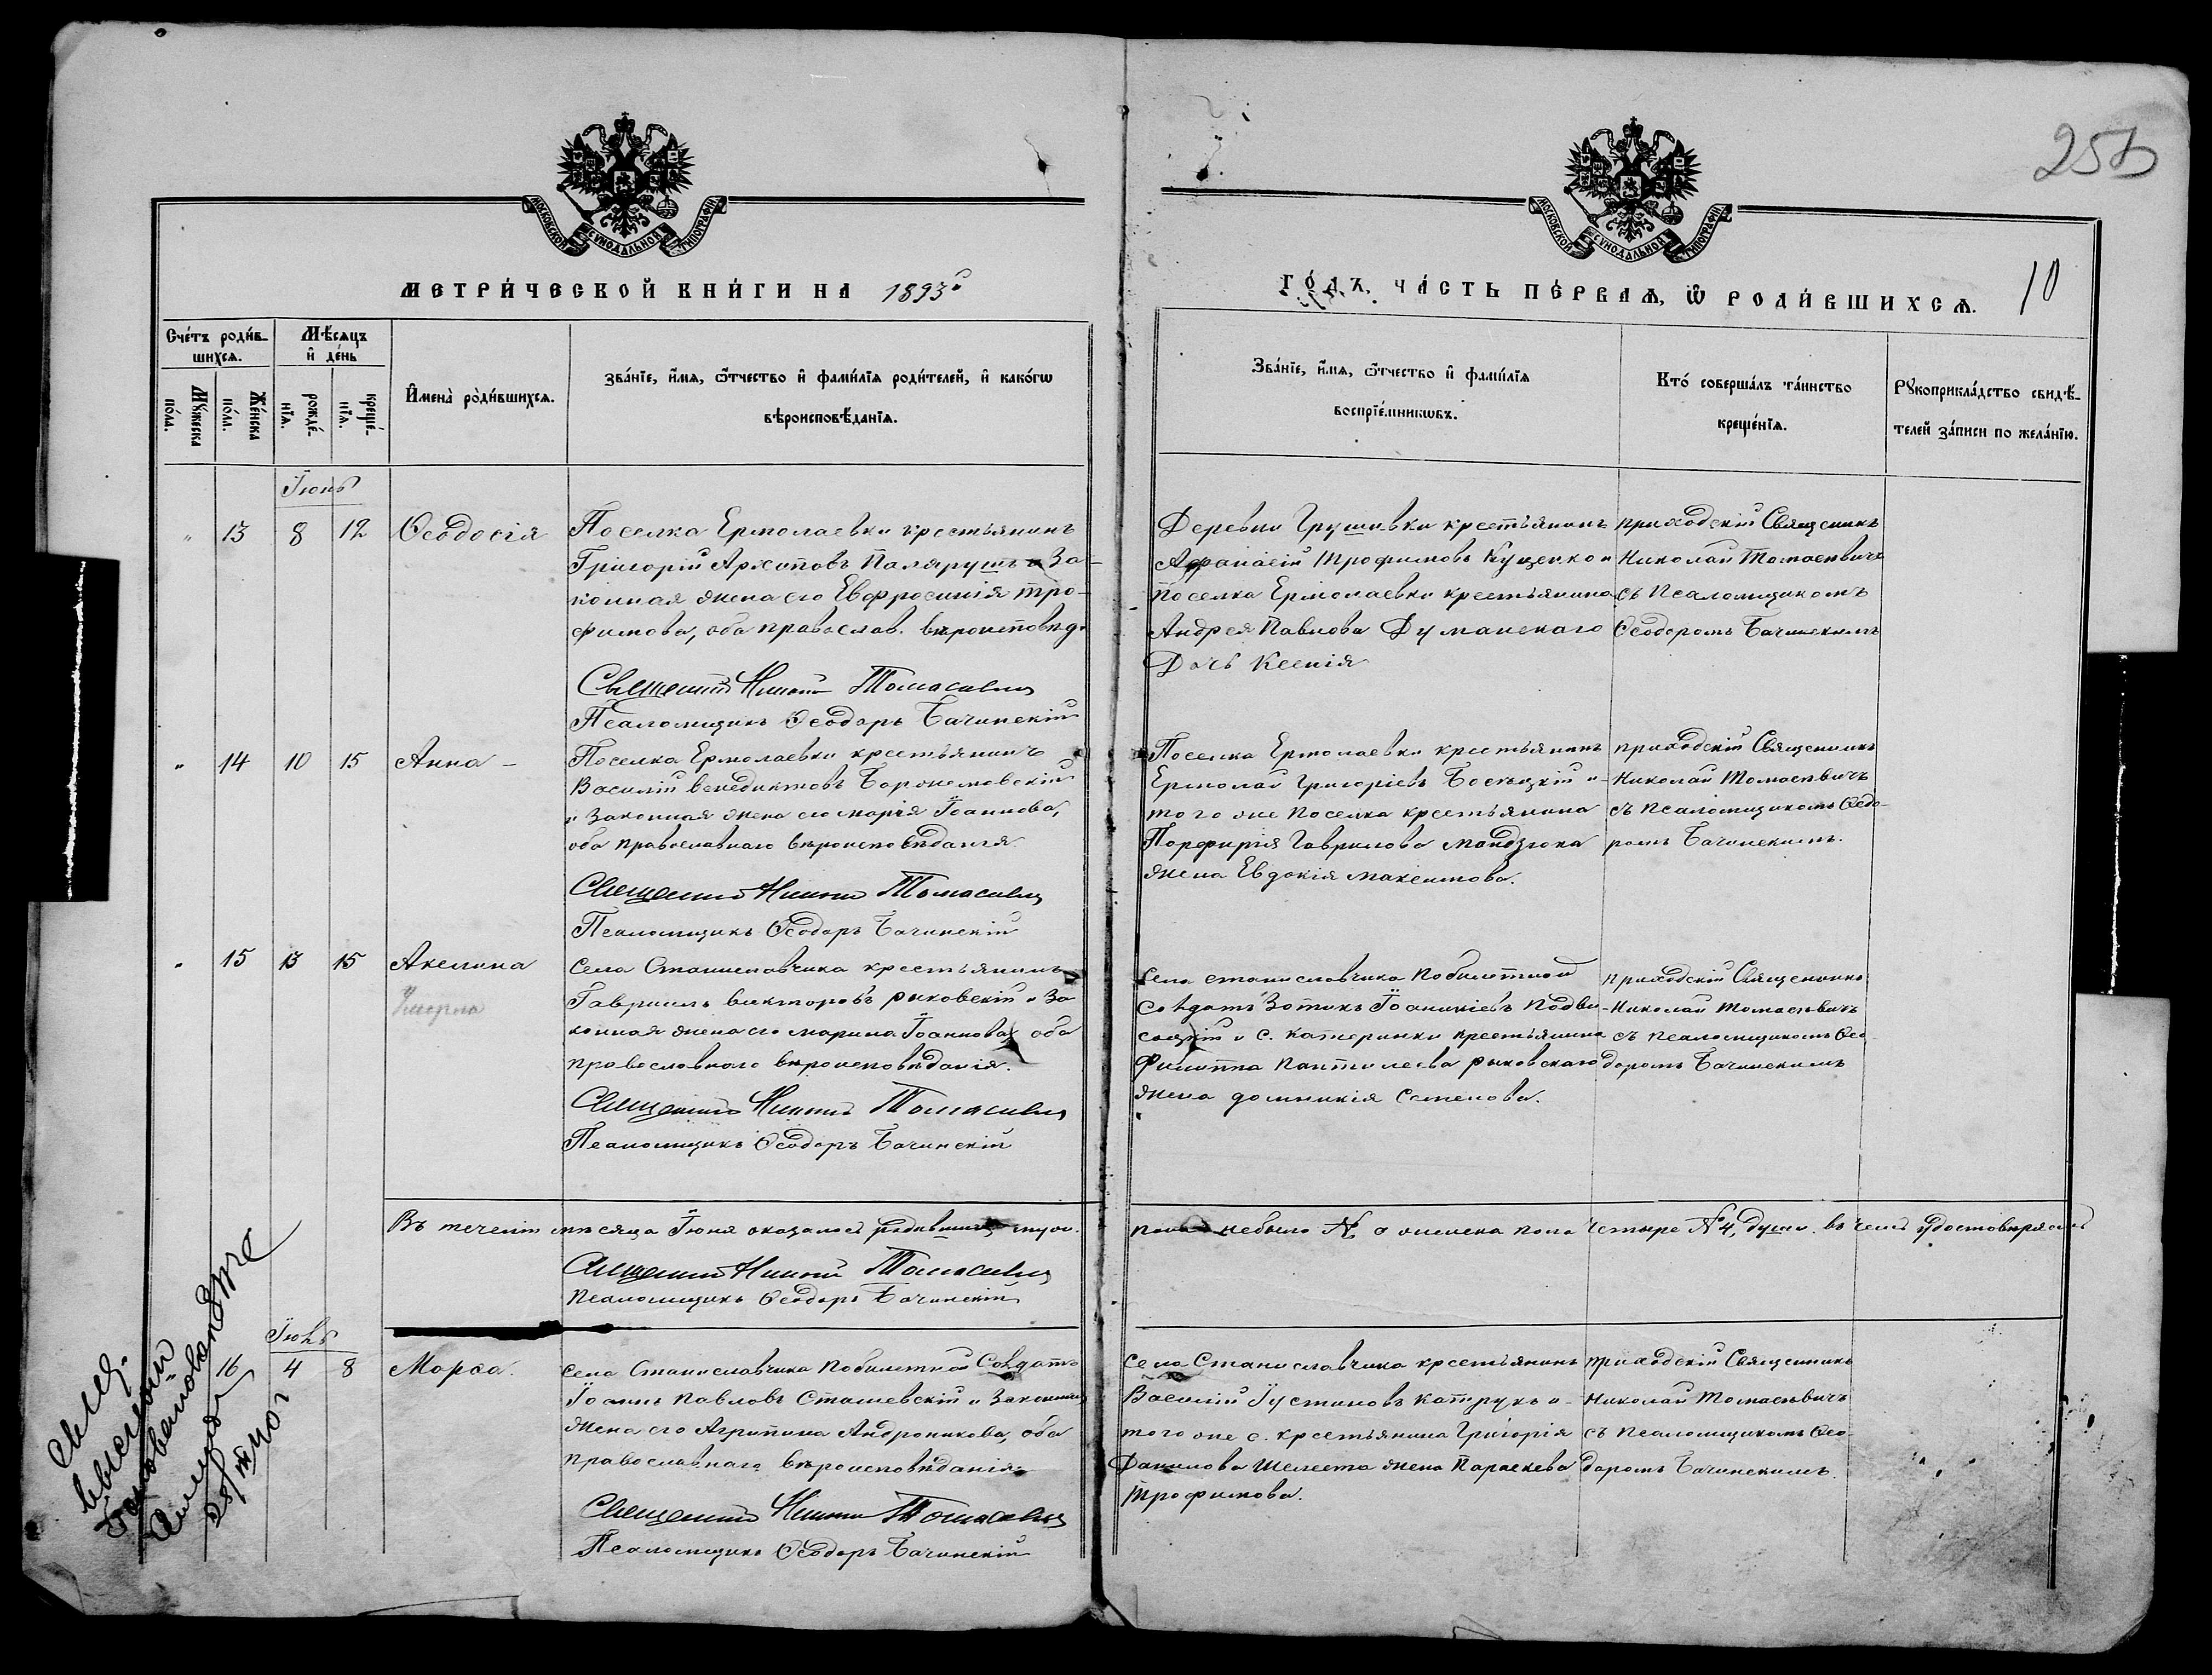 255
МОСКОВСКОЙ СѴНОДАЛЬНОЙ ТИПОГРАФІИ
МОСКОВСКОЙ СѴНОДАЛЬНОЙ ТИПОГРАФІИ
МЕТРИ́ЧЕСКОЙ КНИ́ГИ НА 1893й
ГО́ДЪ, ЧА́СТЬ ПЕ́РВАѦ, Ѡ҆ РОДИ́ВШИХСѦ.
10
Сче́тъ роди́в-
шихсѧ.
Мѣ́сѧцъ
и҆ де́нь
Мꙋ́жеска
по́ла.
Же́нска
по́ла.
рожде́-
нїѧ.
креще́-
нїѧ.
И҆мена̀ роди́вшихсѧ.
Зва́нїе, и҆́мѧ, ѻ҆́тчество и҆ фами́лїѧ роди́телей, и҆ како́гѡ
вѣроисповѣ́данїѧ.
Зва́нїе, и҆́мѧ, ѻ҆́тчество и҆ фами́лїѧ
воспрїе́мникѡвъ.
Кто́ соверша́лъ та́инство
креще́нїѧ.
Рꙋкоприкла́дство свидѣ́-
телей за́писи по жела́нїю.
Іюнь
" 13 8 12 Ѳеодосія
Поселка Ермолаевки крестьянинъ
Григорій Архиповъ Палярушъ и За-
конная жена его Евфросинія Тро-
фимова, оба православ. вѣроисповѣд.
Священникъ Николай Томасевичъ
Псаломщикъ Ѳеодоръ Бачинскій
Деревни Грушевки крестьянинъ
Афанасій Трофимовъ Куценко и
поселка Ермолаевки крестьянина
Андрея Павлова Думанскаго
Дочь Ксенія
приходскій Священникъ
Николай Томасевичъ
съ Псаломщикомъ
Ѳеодоромъ Бачинскимъ
" 14 10 15 Анна
Поселка Ермолаевки крестьянинъ
Василій Венедиктовъ
и Законная жена его Марія Іоаннова,
оба православнаго вѣроисповѣданія.
Священникъ Николай Томасевичъ
Псаломщикъ Ѳеодоръ Бачинскій
Поселка Ермолаевки крестьянинъ
Ермолай Григоріевъ и
того же поселка крестьянина
Порфирія Гаврилова Мандзюка
жена Евдокія Максимова.
приходскій Священникъ
Николай Томасевичъ
съ псаломщикомъ Ѳедо-
ромъ Бачинскимъ.
" 15 13 15 Акелина
Села Станиславчика крестьянинъ
Гавріилъ Викторовъ Рыковскій и За
конная жена его Марина Іоаннова, оба
православнаго вѣроисповѣданія.
Священникъ Николай Томасевичъ
Псаломщикъ Ѳеодоръ Бачинскій
Села Станиславчика по билетной
Солдатъ Зотикъ Іоаникіевъ Подви
соцкій и с. Катеринки крестьянина
Филиппа Пантилеева Рыковскаго
жена Домникія Семенова.
приходскій Священникъ
Николай Томасевичъ
съ псаломщикомъ Ѳео
доромъ Бачинскимъ
Въ теченіи мѣсяца Іюня оказалось родившихся муж.
пола небыло № 0 а женска пола четыре № 4, души. въ чемъ удостовѣряемъ
Священникъ Николай Томасевичъ
Псаломщикъ Ѳеодоръ Бачинскій
Іюль
16 4 8 Марѳа.
Села Станиславчика по билетной Солдатъ
Іоаннъ Павловъ Сташевскій и Законная
жена его Агрипина Андроникова, оба
православнаго вѣроисповѣданія.
Священникъ Николай Томасевичъ
Псаломщикъ Ѳеодоръ Бачинскій
Села Станиславчика крестьянинъ
Василій Іустиновъ Катрукъ и
того же с. крестьянина Григорія
Данилова Шелеста жена Параскева
Трофимова.
приходскій Священникъ
Николай Томасевичъ
съ псаломщикомъ Ѳео-
доромъ Бачинскимъ.